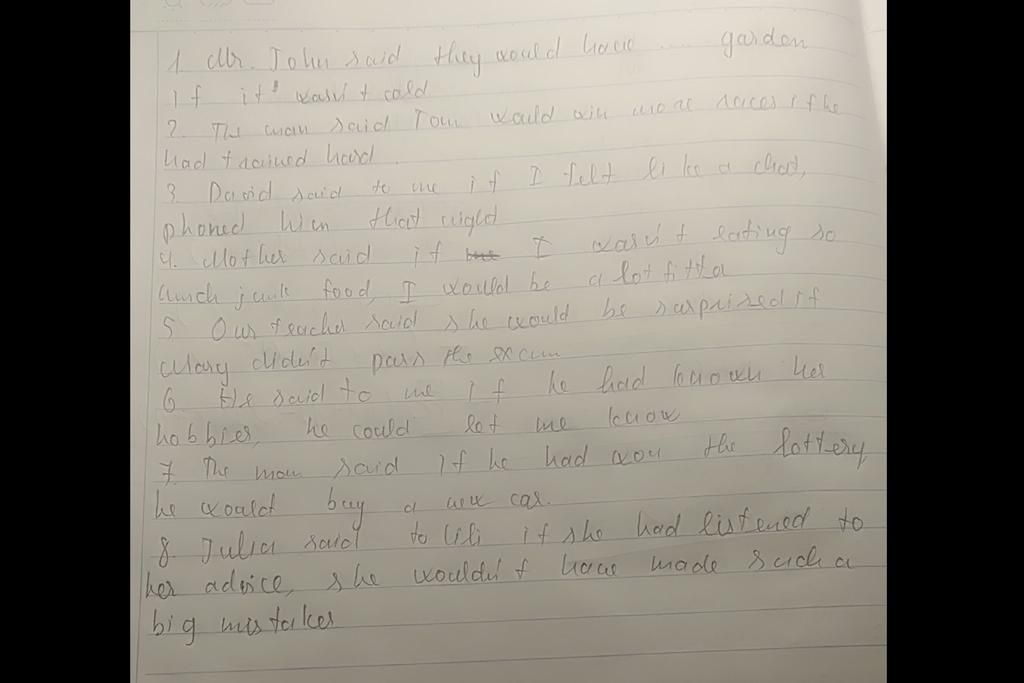 1. Mr. John said they would have .... garden
if it wasn't cold
2. The man said Tom would win more races if he
had trained hard.
3 David said to me if I felt like a chat,
phoned him that night
4. Mother said if I wasn't eating so
much junk food, I would be a lot fitter
5 Our teacher said she would be surprised if
Mary didn't pass the exam
6. He said to me if he had known her
hobbies, he could let me know
7 The man said if he had won the lottery,
he would buy a new car.
8. Julia said to Lili if she had listened to
her advice, she wouldn't have made such a
big mistakes